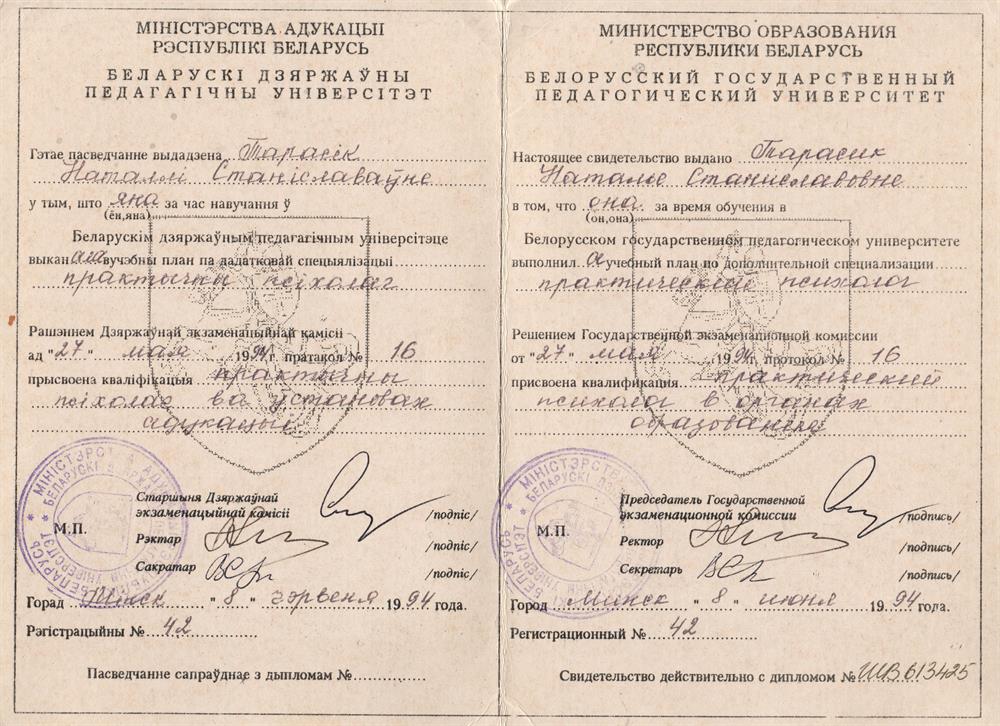 МІНІСТЭРСТВА АДУКАЦЫІ
РЭСПУБЛІКІ БЕЛАРУСЬ
БЕЛАРУСКІ ДЗЯРЖАЎНЫ
ПЕДАГАГІЧНЫ УНІВЕРСІТЭТ
Гэтае пасведчанне выдадзена Тарасік
Наталлі Станіславаўне
у тым, што яна за час навучання ў
(ён,яна)
Беларускім дзяржаўным педагагічным універсітэце
выканала вучэбны план па дадатковай спецыялізацыі
практычны псіхолаг
Рашэннем Дзяржаўнай экзаменацыйнай камісіі
ад "27" мая 1994 г. пратакол № 16
прысвоена кваліфікацыя практычны
псіхолаг ва ўстановах
адукацыі
Старшыня Дзяржаўнай
экзаменацыйнай камісіі /подпіс/
М.П.
Рэктар /подпіс/
Сакратар /подпіс/
Горад Мінск "8" чэрвеня 1994 года.
Рэгістрацыйны № 42
Пасведчанне сапраўднае з дыпломам №
МИНИСТЕРСТВО ОБРАЗОВАНИЯ
РЕСПУБЛИКИ БЕЛАРУСЬ
БЕЛОРУССКИЙ ГОСУДАРСТВЕННЫЙ
ПЕДАГОГИЧЕСКИЙ УНИВЕРСИТЕТ
Настоящее свидетельство выдано Тарасик
Наталье Станиславовне
в том, что она за время обучения в
(он,она)
Белорусском государственном педагогическом университете
выполнила учебный план по дополнительной специализации
практический психолог
Решением Государственной экзаменационной комиссии
от "27" мая 1994 протокол № 16
присвоена квалификация практический
психолог в органах
образования
Председатель Государственной
экзаменационной комиссии /подпись/
М.П.
Ректор /подпись/
Секретарь /подпись/
Город Минск "8" июня 1994 года.
Регистрационный № 42
Свидетельство действительно с дипломом № ШВ 613425